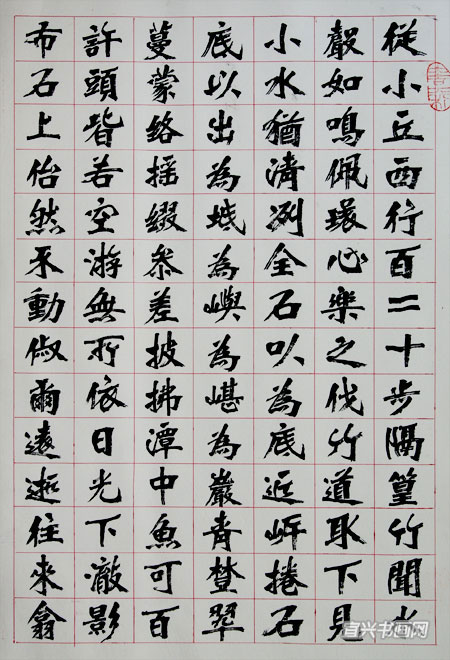 從小丘西行百二十步隔篁竹聞水
聲如鳴佩環心樂之伐竹道取下見
小水猶清冽全石以為底近岸捲石
底以出為坻為嶼為嵁為巖青樹翠
蔓蒙絡搖綴參差披拂潭中魚可百
許頭皆若空游無所依日光下澈影
布石上佁然不動俶爾遠逝往來翕
宜兴书画网